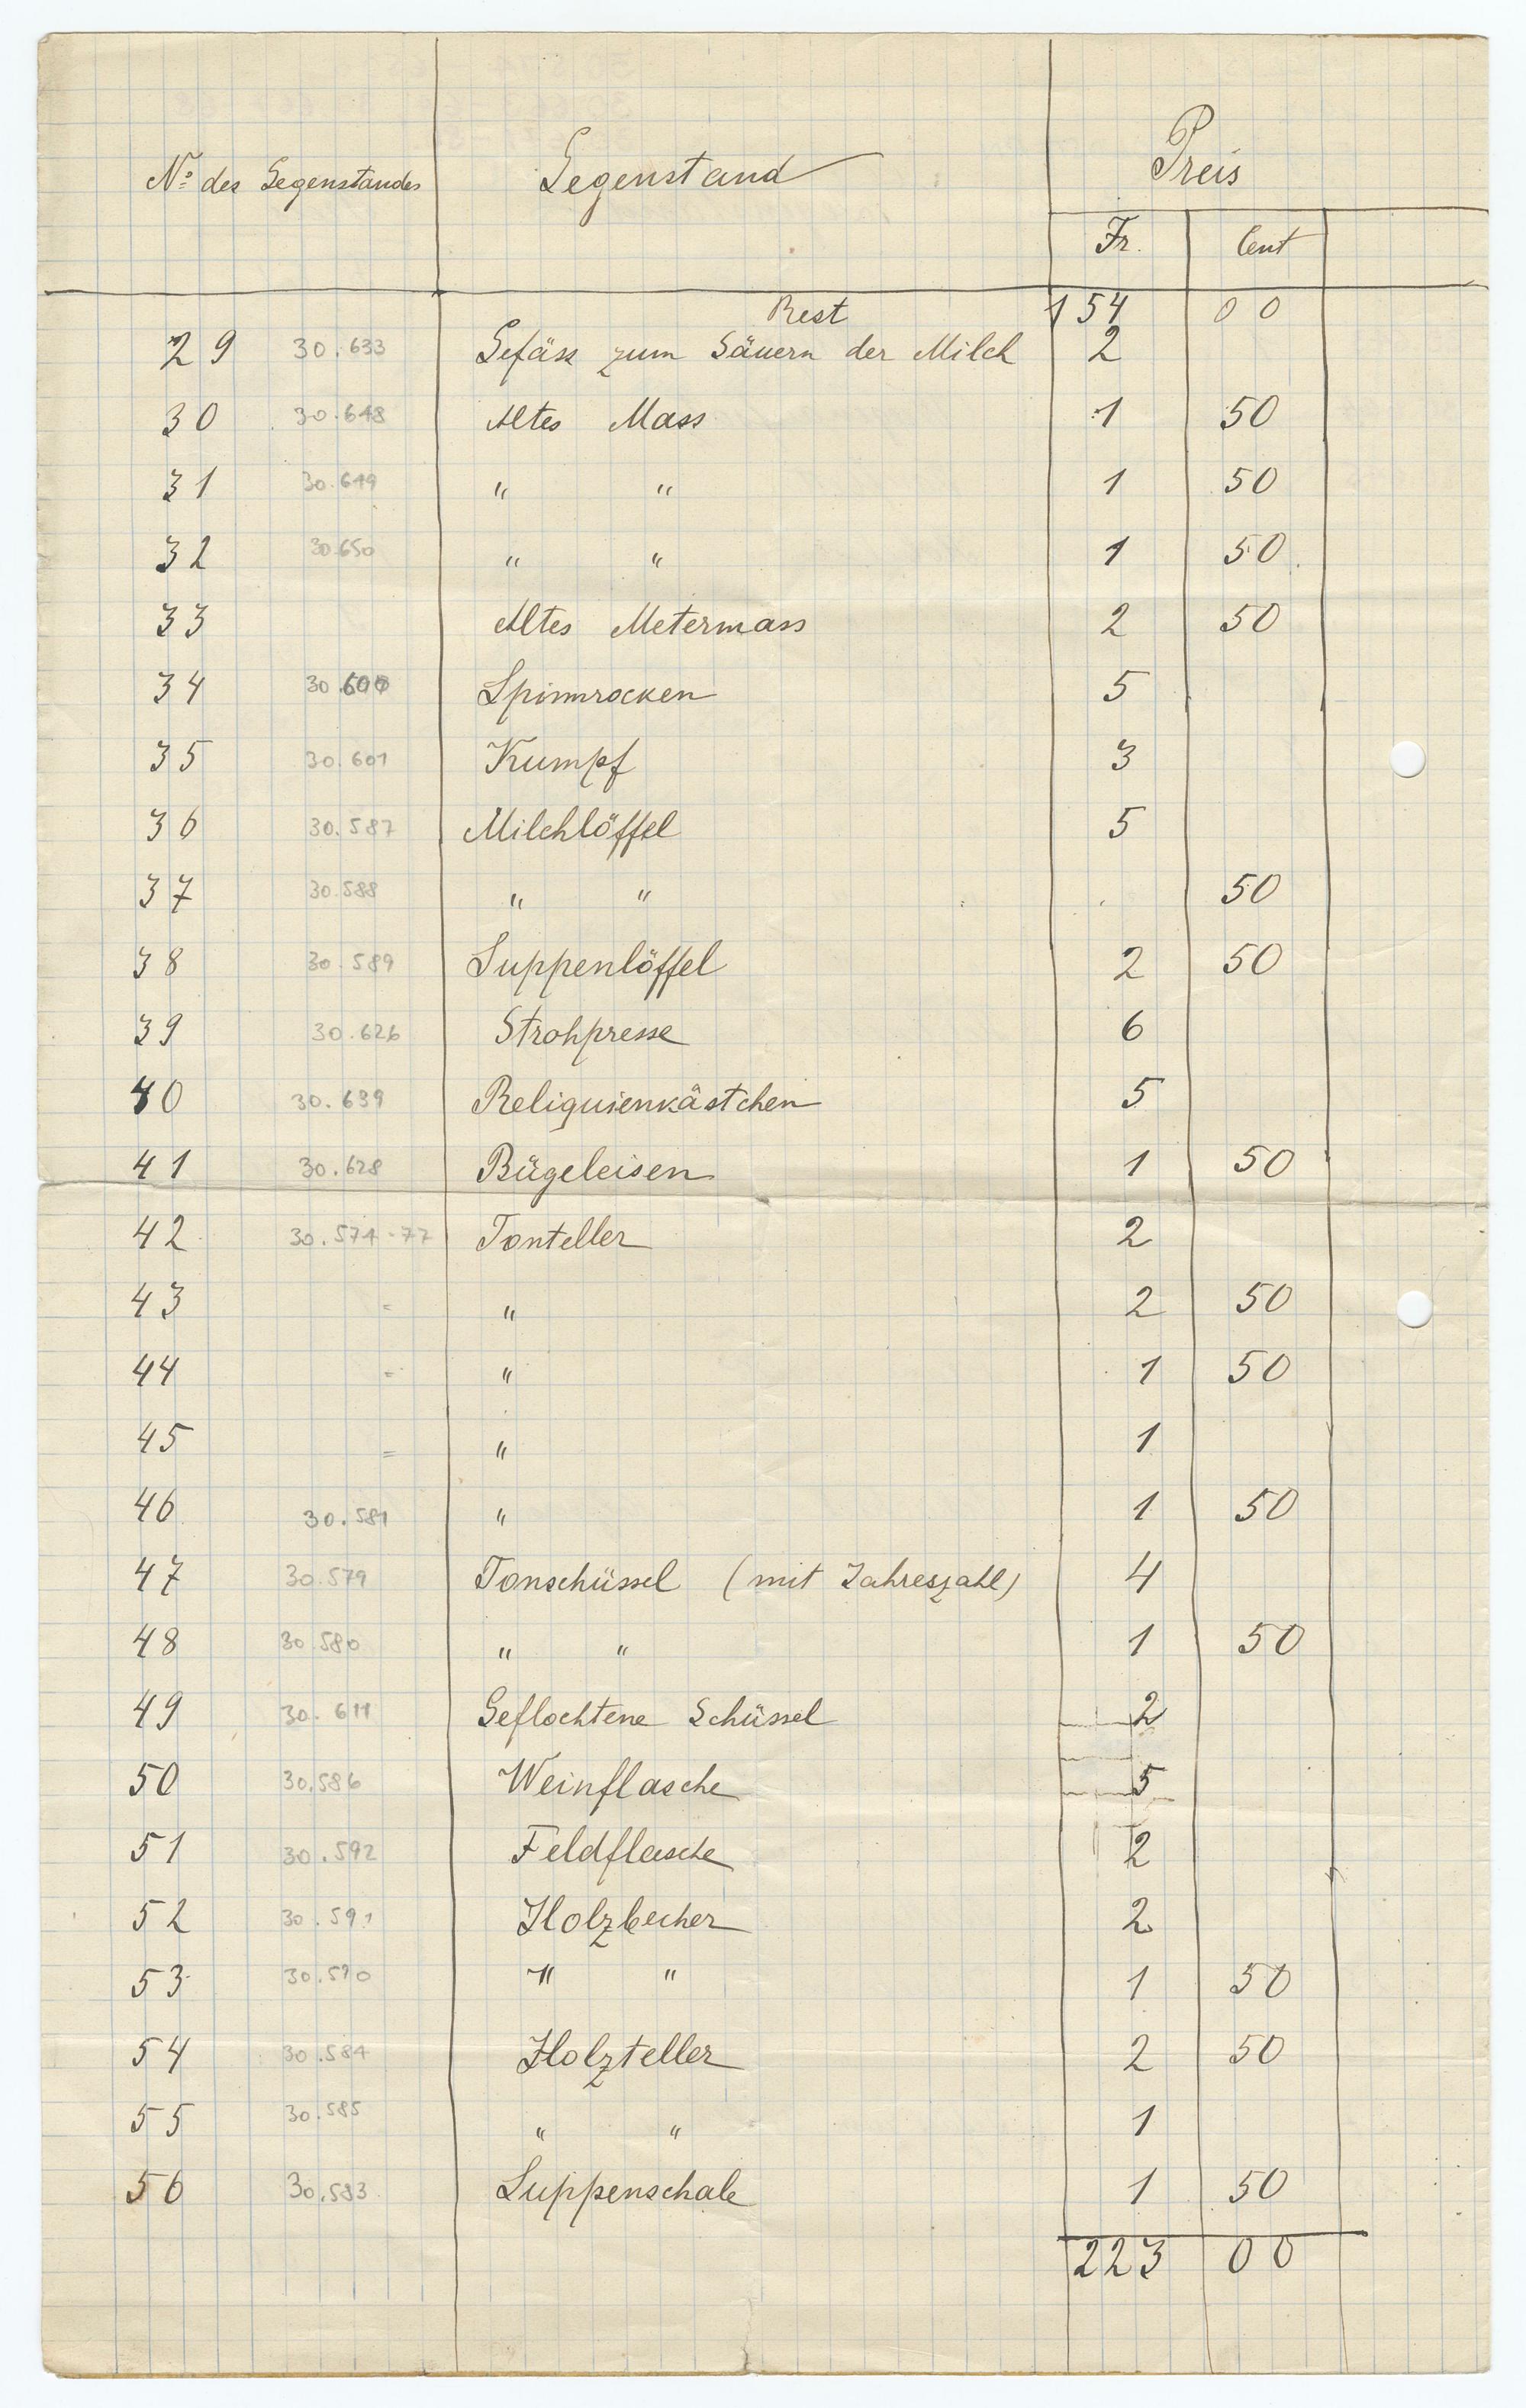 No des Gegenstandes Gegenstand Preis
Fr. Cent
Rest 154 00
29 30.633 Gefäss zum Säuern der Milch 2
30 30.648 Altes Mass 1 50
31 30.649 " " 1 50
32 30.650 " " 1 50
33 Altes Metermass 2 50
34 30.600 Spinnrocken 5
35 30.601 Kumpf 3
36 30.587 Milchlöffel 5
37 30.588 " " 50
38 30.589 Suppenlöffel 2 50
39 30.626 Strohpresse 6
40 30.639 Reliquienkästchen 5
41 30.628 Bügeleisen 1 50
42 30.574-77 Tonteller 2
43 = " 2 50
44 = " 1 50
45 = " 1
46 30.581 " 1 50
47 30.579 Tonschüssel (mit Jahreszahl) 4
48 30.580 " " 1 50
49 30.611 Geflochtene Schüssel 2
50 30.586 Weinflasche 5
51 30.592 Feldflasche 2
52 30.591 Holzbecher 2
53 30.590 " " 1 50
54 30.584 Holzteller 2 50
55 30.585 " " 1
56 30.583 Suppenschale 1 50
223 00